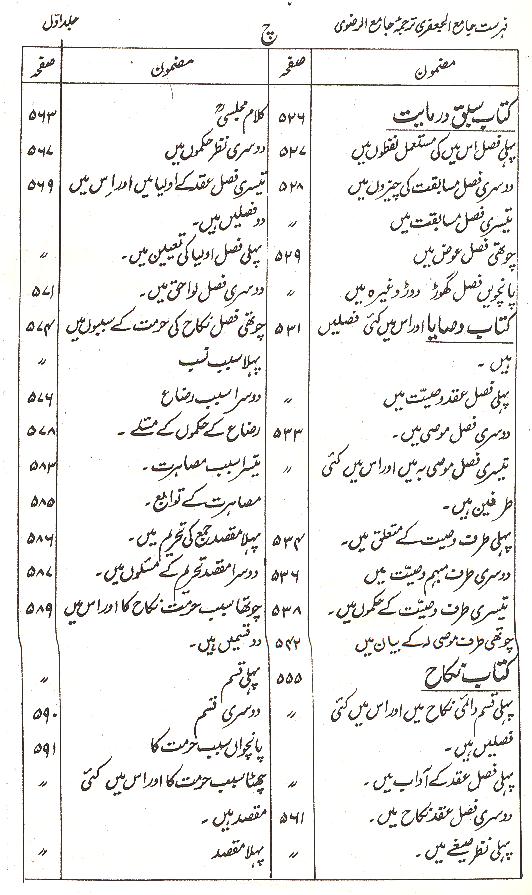 فہرست جامع الجعفری ترجمۂ جامع الرضوی
ج
جلد اوّل
مضمون
صفحہ
کتاب سبق و رمایت ۵۲۶
پہلی فصل اس میں کی مستعمل لفظوں میں ۵۲۷
دوسری فصل مسابقت کی چیزوں میں ۵۲۸
تیسری فصل مسابقت میں ״
چوتھی فصل عوض میں ۵۲۹
پانچویں فصل گھوڑ دوڑ وغیرہ میں ״
کتاب وصایا اور اس میں کئی فصلیں ۵۳۱
ہیں ۔
پہلی فصل عقد وصیّت میں ״
دوسری فصل موصی میں۔ ۵۳۳
تیسری فصل موصی بہ میں اور اس میں کئی ״
طرفین ہیں۔
پہلی طرف وصیت کے متعلق میں۔ ۵۳۴
دوسری طرف مبہم وصیّت میں ۵۳۶
تیسری طرف وصیّت کے حکموں میں۔ ۵۳۸
چوتھی طرف موصی لہ کے بیان میں ۵۴۲
کتاب نکاح ۵۵۵
پہلی قسم دائمی نکاح میں اور اس میں کئی ״
فصلیں ہیں۔
پہلی فصل عقد کے آداب میں۔ ״
دوسری فصل عقد نکاح میں۔ ۵۶۱
پہلی نظر صیغے میں۔ ״
مضمون
صفحہ
کلام مجلسیؒ ۵۶۳
دوسری نظر حکموں میں ۵۶۷
تیسری فصل عقد کے اولیا میں اور اس میں ۵۶۹
دو فصلیں ہیں۔
پہلی فصل اولیا کی تعیین میں۔ ״
دوسری فصل لواحق میں۔ ۵۷۱
چوتھی فصل نکاح کی حرمت کے سببوں میں ۵۷۴
پہلا سبب نسب ״
دوسرا سبب رضاع ۵۷۶
رضاع کے حکموں کے مسئلے ۔ ۵۷۸
تیسرا سبب مصاہرت ۔ ۵۸۳
مصاہرت کے توابع ۔ ۵۸۵
پہلا مقصد جمع کی تحریم میں۔ ۵۸۶
دوسرا مقصد تحریم کے مسئلوں میں۔ ۵۸۷
چوتھا سبب حرمت نکاح کا اور اس میں ۵۸۹
دو قسمیں ہیں۔
پہلی قسم ״
دوسری قسم ۵۹۰
پانچواں سبب حرمت کا ۵۹۱
چھٹا سبب حرمت کا اور اس میں کئی ״
مقصد ہیں۔
پہلا مقصد ״